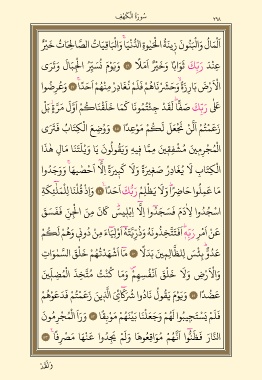 ٢٩٨ سُورَةُ الْكَهْفِ
اَلْمَالُ وَالْبَنُونَ زِينَةُ الْحَيٰوةِ الدُّنْيَاۚ وَالْبَاقِيَاتُ الصَّالِحَاتُ خَيْرٌ
عِنْدَ رَبِّكَ ثَوَابًا وَخَيْرٌ اَمَلًا ﴿٤٦﴾ وَيَوْمَ نُسَيِّرُ الْجِبَالَ وَتَرَى
الْاَرْضَ بَارِزَةًۙ وَحَشَرْنَاهُمْ فَلَمْ نُغَادِرْ مِنْهُمْ اَحَدًاۚ ﴿٤٧﴾ وَعُرِضُوا
عَلٰى رَبِّكَ صَفًّاۜ لَقَدْ جِئْتُمُونَا كَمَا خَلَقْنَاكُمْ اَوَّلَ مَرَّةٍۘ بَلْ
زَعَمْتُمْ اَلَّنْ نَجْعَلَ لَكُمْ مَوْعِدًا ﴿٤٨﴾ وَوُضِعَ الْكِتَابُ فَتَرَى
الْمُجْرِمِينَ مُشْفِقِينَ مِمَّا فِيهِ وَيَقُولُونَ يَا وَيْلَتَنَا مَالِ هٰذَا
الْكِتَابِ لَا يُغَادِرُ صَغِيرَةً وَلَا كَبِيرَةً اِلَّٓا اَحْصٰيهَاۚ وَوَجَدُوا
مَا عَمِلُوا حَاضِرًاۜ وَلَا يَظْلِمُ رَبُّكَ اَحَدًا۟ ﴿٤٩﴾ وَاِذْ قُلْنَا لِلْمَلٰٓئِكَةِ
اسْجُدُوا لِاٰدَمَ فَسَجَدُٓوا اِلَّٓا اِبْلِيسَۜ كَانَ مِنَ الْجِنِّ فَفَسَقَ
عَنْ اَمْرِ رَبِّهٖۜ اَفَتَتَّخِذُونَهُ وَذُرِّيَّتَهُٓ اَوْلِيَٓاءَ مِنْ دُونِي وَهُمْ لَكُمْ
عَدُوٌّۜ بِئْسَ لِلظَّالِمِينَ بَدَلًا ﴿٥٠﴾ مَٓا اَشْهَدْتُهُمْ خَلْقَ السَّمٰوَاتِ
وَالْاَرْضِ وَلَا خَلْقَ اَنْفُسِهِمْۖ وَمَا كُنْتُ مُتَّخِذَ الْمُضِلِّينَ
عَضُدًا ﴿٥١﴾ وَيَوْمَ يَقُولُ نَادُوا شُرَكَٓاءِيَ الَّذِينَ زَعَمْتُمْ فَدَعَوْهُمْ
فَلَمْ يَسْتَجِيبُوا لَهُمْ وَجَعَلْنَا بَيْنَهُمْ مَوْبِقًا ﴿٥٢﴾ وَرَاَ الْمُجْرِمُونَ
النَّارَ فَظَنُّٓوا اَنَّهُمْ مُوَاقِعُوهَا وَلَمْ يَجِدُوا عَنْهَا مَصْرِفًا۟ ﴿٥٣﴾
وَلَقَدْ